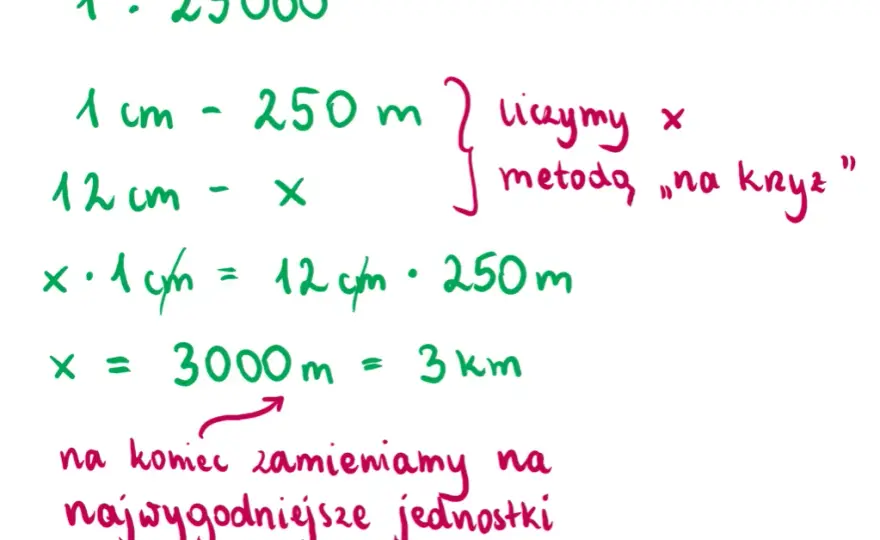 1 : 25000
1 cm - 250 m
12 cm - x
liczymy x
metodą „na krzyż”
x · 1 cm = 12 cm · 250 m
x = 3000 m = 3 km
na koniec zamieniamy na
najwygodniejsze jednostki